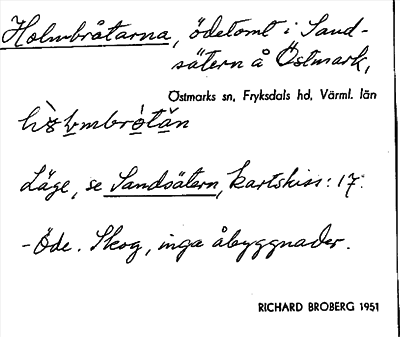 Holmbråtarna, ödetomt i Sand-
sätern å Östmark,
Östmarks sn, Fryksdals hd, Värml. län
Läge, se Sandsätern, kartskiss: 17.
- Öde. Skog, inga åbyggnader.
RICHARD BROBERG 1951